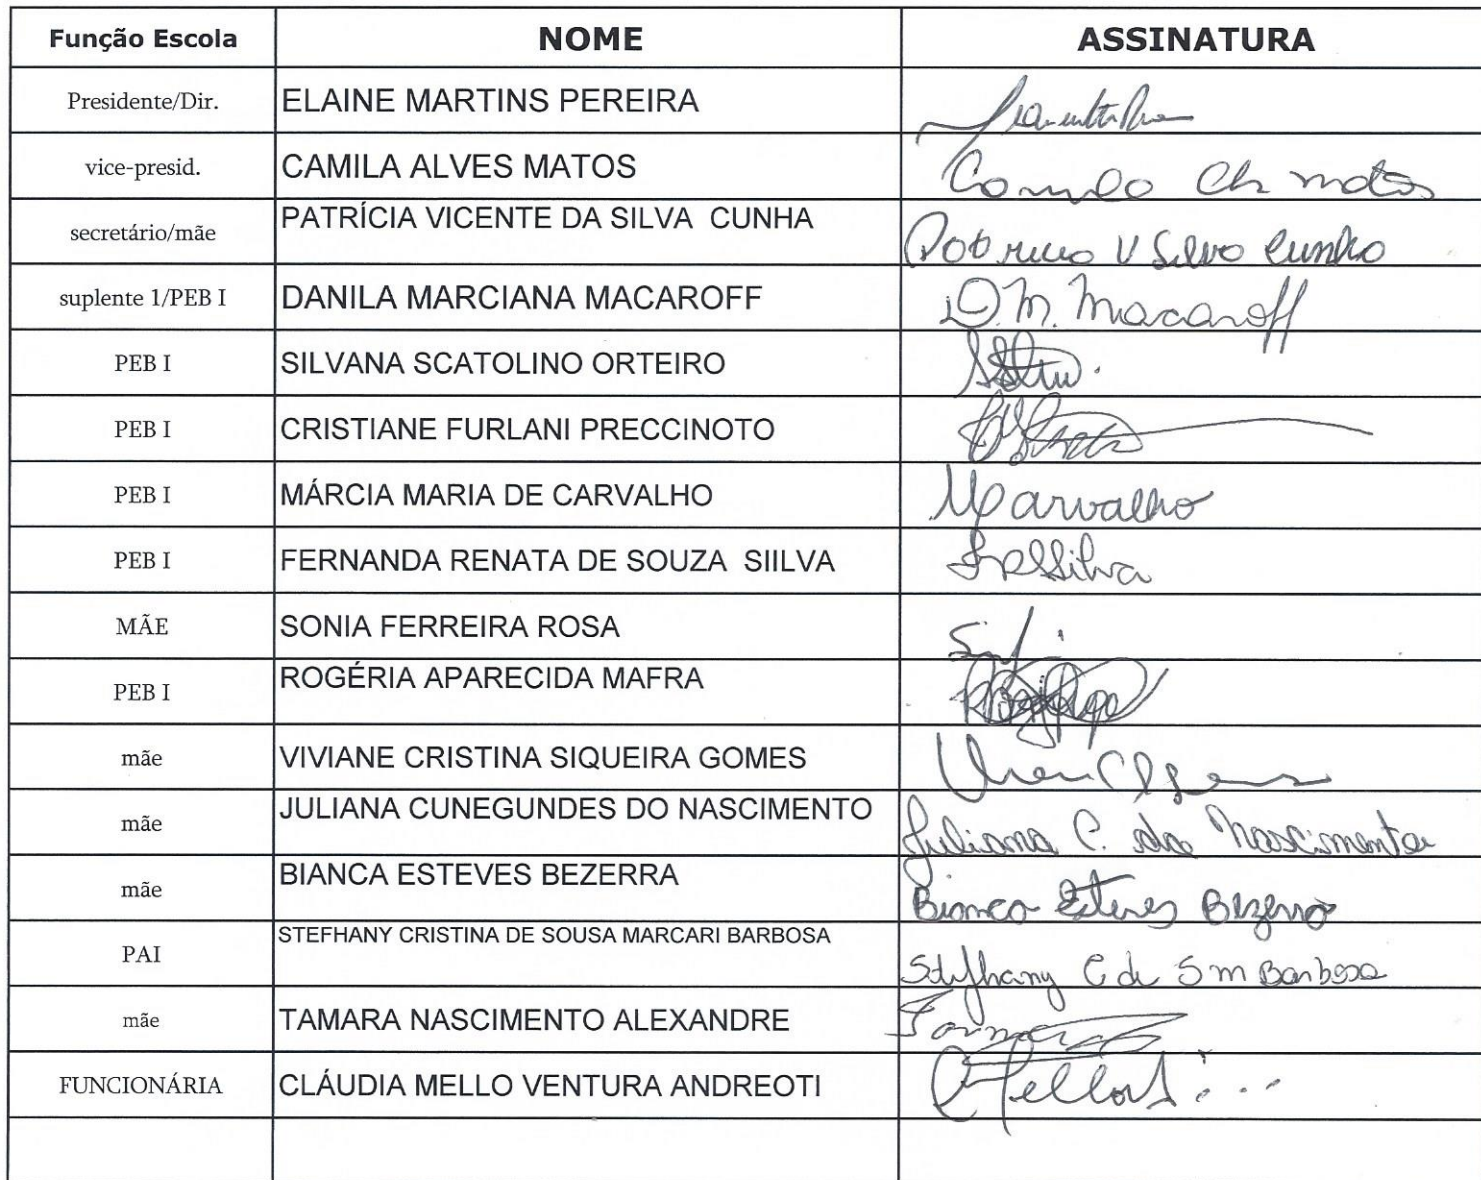 Função Escola NOME ASSINATURA
Presidente/Dir. ELAINE MARTINS PEREIRA
vice-presid. CAMILA ALVES MATOS Camila Matos
secretário/mãe PATRÍCIA VICENTE DA SILVA CUNHA Patricia V Silva Cunha
suplente 1/PEB I DANILA MARCIANA MACAROFF D. M. Macaroff
PEB I SILVANA SCATOLINO ORTEIRO
PEB I CRISTIANE FURLANI PRECCINOTO
PEB I MÁRCIA MARIA DE CARVALHO MCarvalho
PEB I FERNANDA RENATA DE SOUZA SIILVA
MÃE SONIA FERREIRA ROSA
PEB I ROGÉRIA APARECIDA MAFRA
mãe VIVIANE CRISTINA SIQUEIRA GOMES
mãe JULIANA CUNEGUNDES DO NASCIMENTO Juliana C. do Nascimento
mãe BIANCA ESTEVES BEZERRA Bianca Esteves Bezerra
PAI STEFHANY CRISTINA DE SOUSA MARCARI BARBOSA Stefhany C de S m Barbosa
mãe TAMARA NASCIMENTO ALEXANDRE
FUNCIONÁRIA CLÁUDIA MELLO VENTURA ANDREOTI